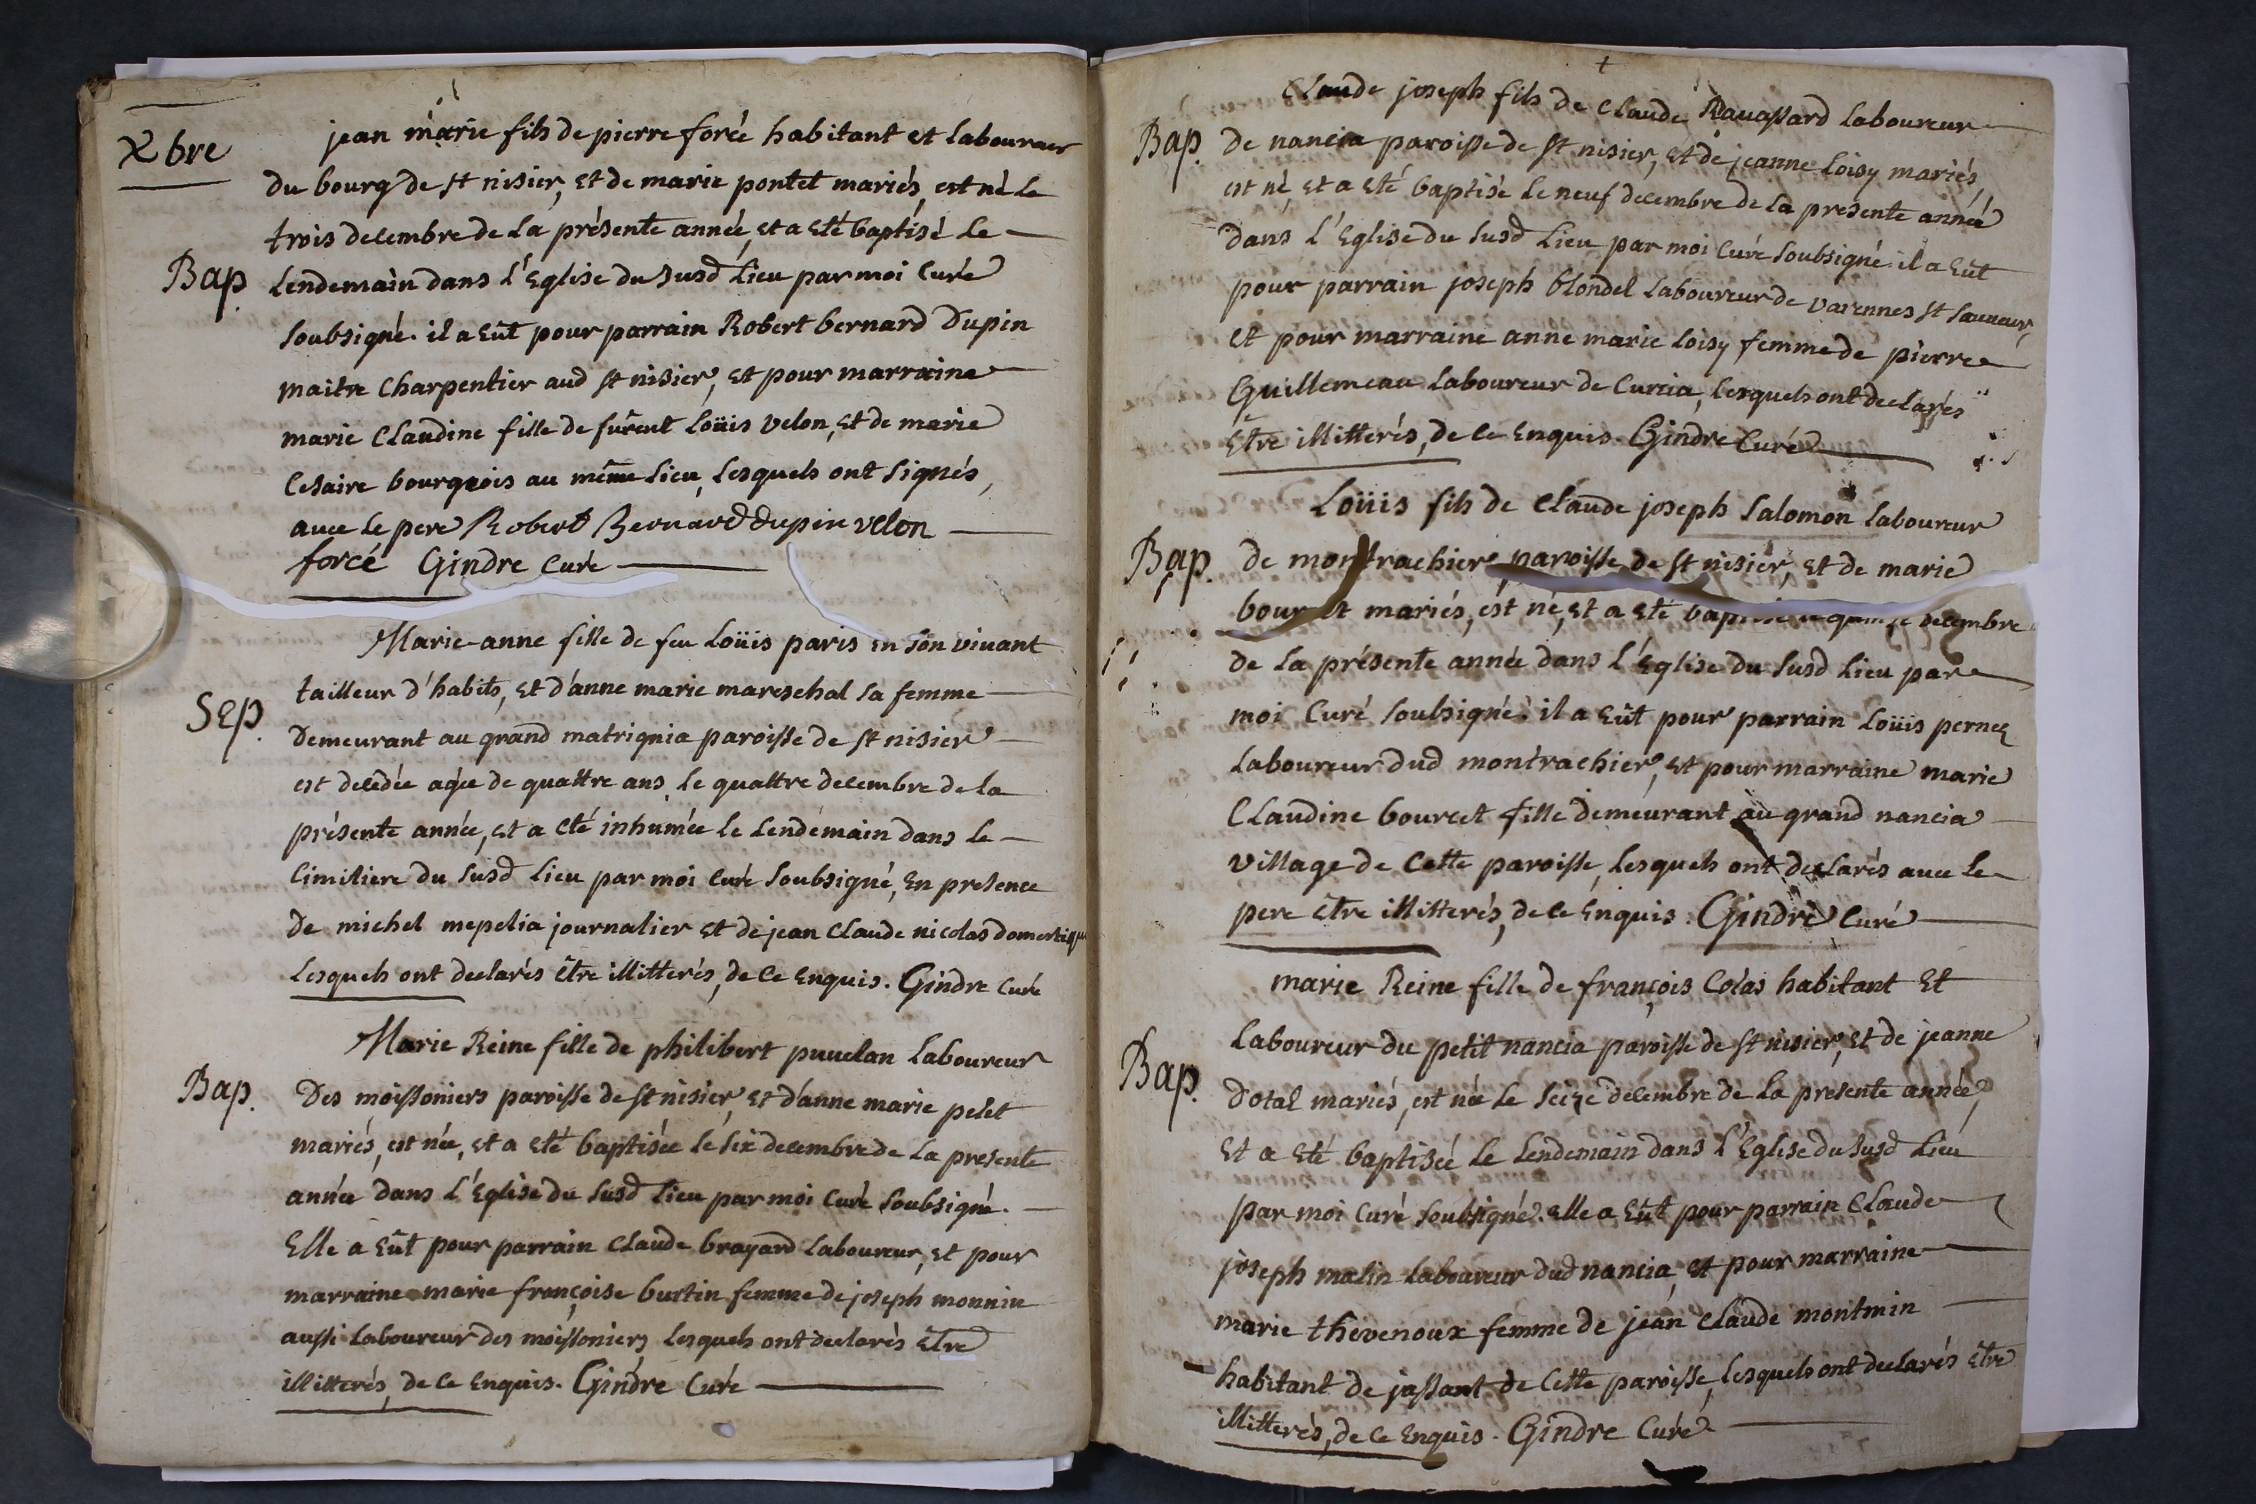 Xbre
jean marie fils de pierre forcé habitant et laboureur
du bourg de st nisier, et de marie pontet mariés, est né le
trois decembre de la présente année, et a eté baptisé le
Bap.
lendemain dans l'Eglise du susd lieu par moi curé
soubsigné. il a eût pour parrain Robert bernard Dupin
maitre charpentier aud st nisier, et pour marraine
marie Claudine fille de furent Loüis velon, et de marie
Cesaire bourgeois au même lieu, lesquels ont signés,
avec le pere Robert Bernard dupin velon
forcé Gindre curé
Marie-anne fille de feu Loüis paris en son vivant
tailleur d'habits, et d'anne marie mareschal sa femme
Sep.
Demeurant au grand matrignia paroisse de st nisier
est decedée agée de quattre ans, le quattre decembre de la
présente année, et a eté inhumée le lendemain dans le
cimitiere du susd lieu par moi curé soubsigné, en presence
de michel mepelia journalier et de jean claude nicolas domestique
lesquels ont declarés être illitterés, de ce enquis. Gindre curé
Marie Reine fille de philibert puvelan laboureur
Bap.
Des moissoniers paroisse de st nisier, et d'anne marie pelet
mariés, est née, et a eté baptisée le six decembre de la presente
année dans l'Eglise du susd lieu par moi curé soubsigné.
Elle a eût pour parrain claude brayard laboureur, et pour
marraine marie françoise burtin femme de joseph monnin
aussi laboureur des moissoniers lesquels ont declarés être
illitterés, de ce enquis. Gindre Curé
Claude joseph fils de claude Ravassard laboureur
Bap.
de nancia paroisse de st nisier, et de jeanne loisy mariés
est né, et a eté baptisé le neuf decembre de la presente année
dans l'Eglise du susd lieu par moi curé soubsigné. il a eût
pour parrain joseph blondel laboureur de varennes st sauveur,
et pour marraine anne marie loisy femme de pierre
Guillemeau laboureur de Curcia, lesquels ont declarés
être illitterés, de ce enquis. Gindre Curé
Loüis fils de claude joseph salomon laboureur
Bap.
de montrachier, paroisse de st nisier, et de marie
mariés, est né, et a eté decembre
de la présente année dans l'Eglise du susd lieu par
moi curé soubsigné. il a eût pour parrain Loüis pernez
laboureur dud montrachier, et pour marraine marie
Claudine bourcet fille demeurant au grand nancia
village de cette paroisse, lesquels ont declarés avec le
pere être illitterés, de ce enquis. Gindre Curé
marie Reine fille de françois Colas habitant et
laboureur du petit nancia paroisse de st nisier, et de jeanne
Bap.
Dotal mariés, est née le seize decembre de la presente année,
et a eté baptisée le lendemain dans l'Eglise du susd lieu
par moi curé soubsigné. elle a eût pour parrain claude
joseph malin laboureur dud nancia, et pour marraine
marie thevenoux femme de jean claude montmin
habitant de jassant de cette paroisse, lesquels ont declarés être
illitterés, de ce enquis. Gindre Curé